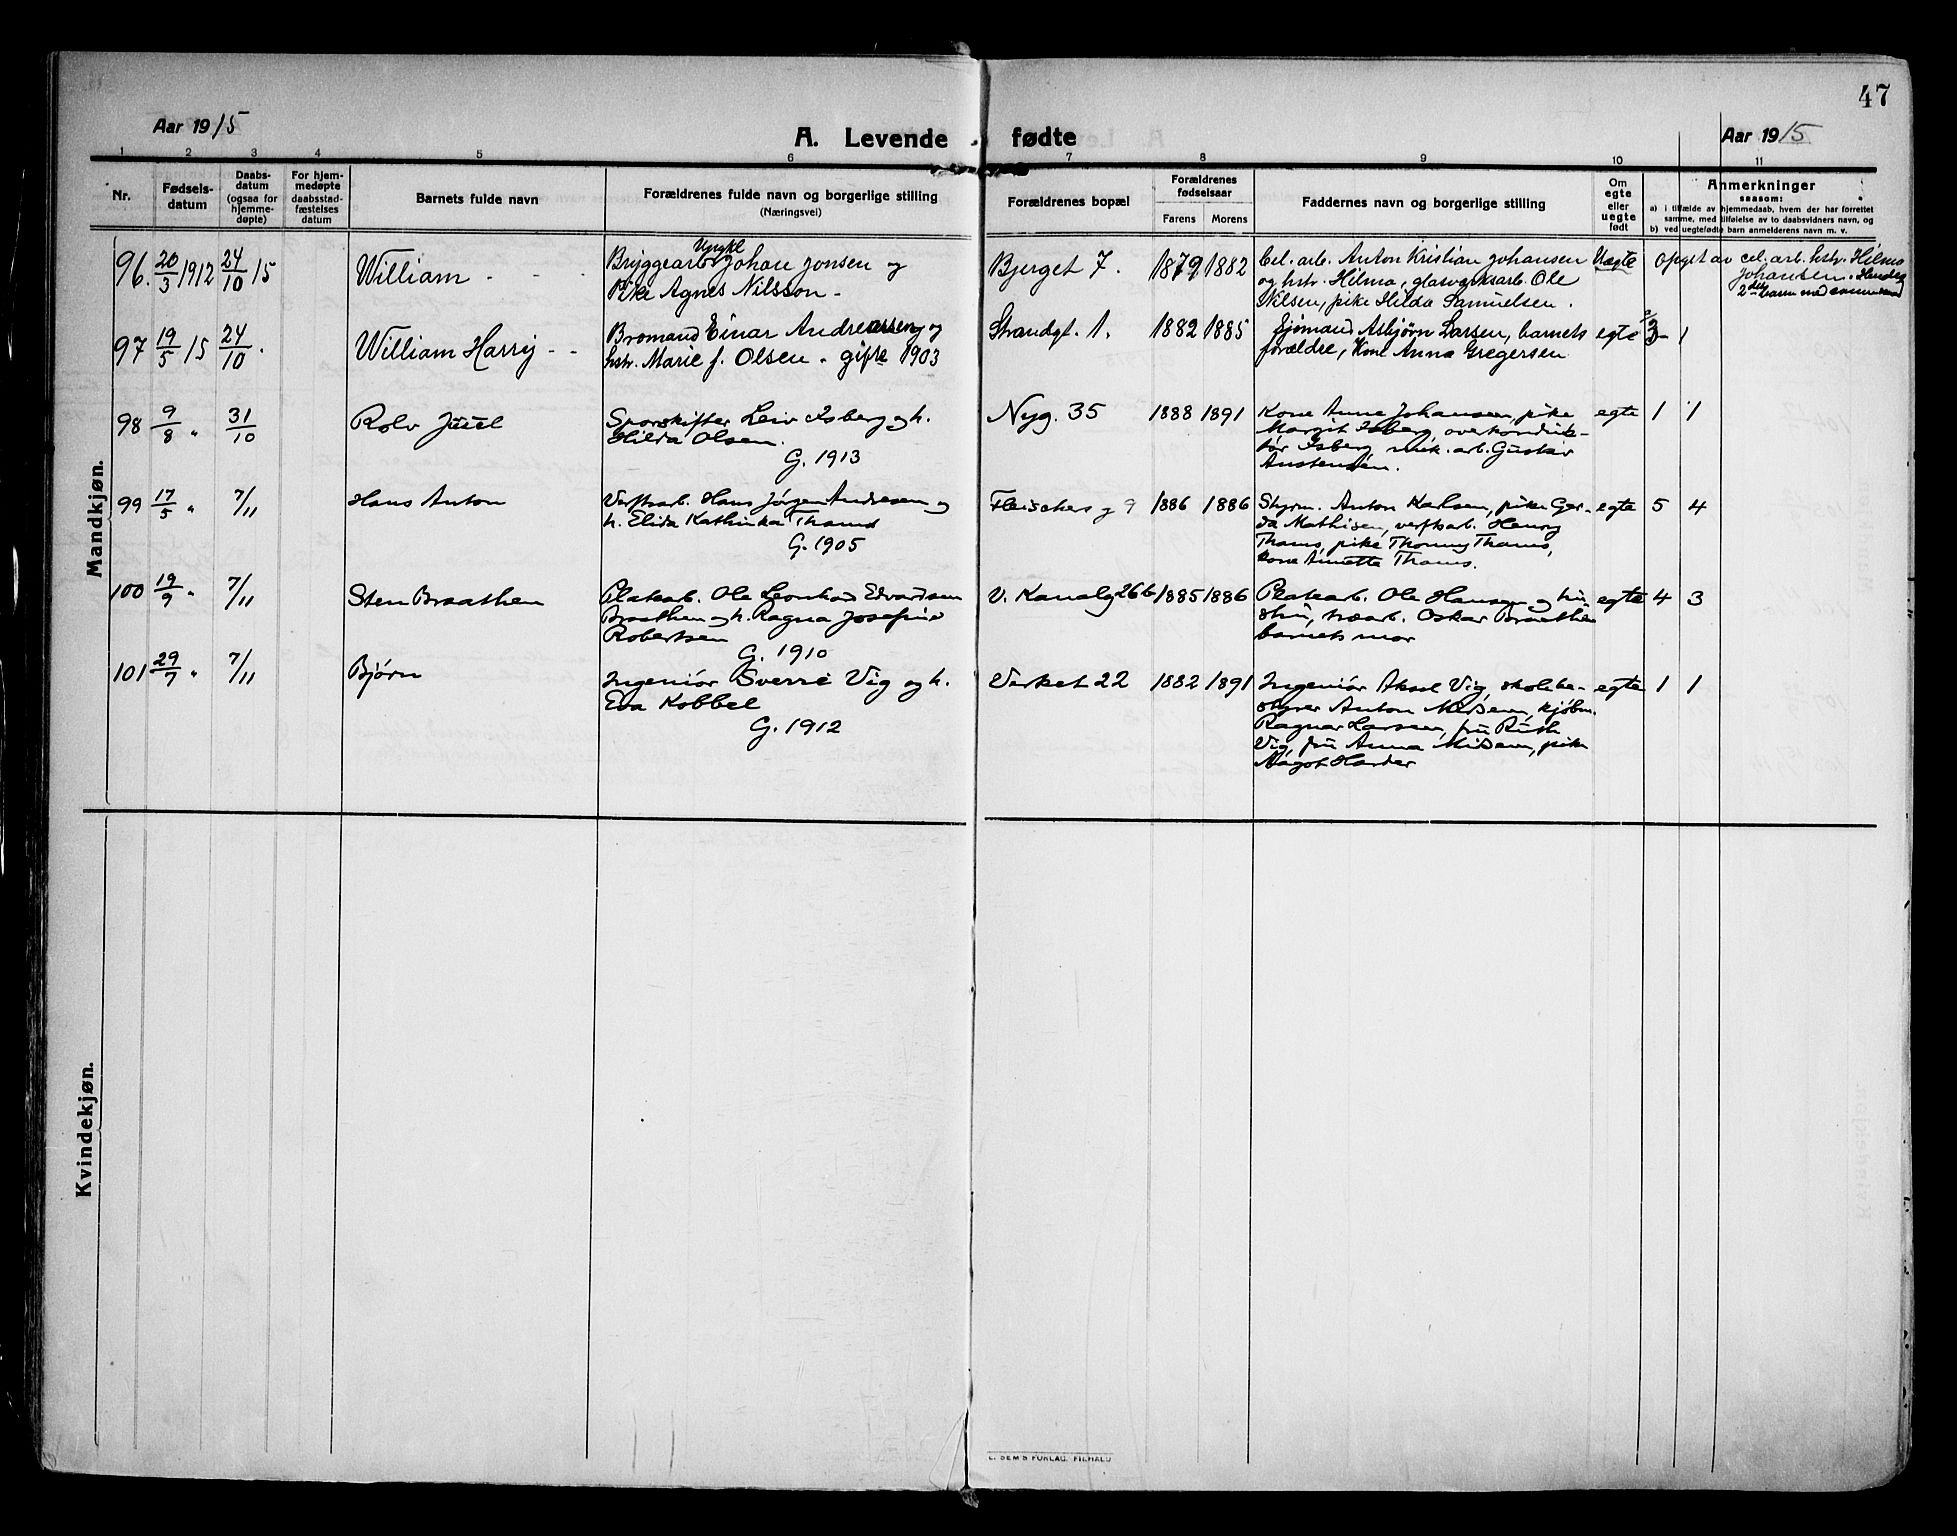 47
Aar 1915
A. Levende fødte
Aar 1915
1 2 3 4 5 6 7 8 9 10 11
Nr.
Fødsels-
datum
Daabs-
datum
(ogsaa for
hjemme-
døpte)
For hjem-
medøpte
daabsstad-
fæstelses
datum
Barnets fulde navn
Forældrenes fulde navn og borgerlige stilling
(Næringsvei)
Forældrenes bopæl
Forældrenes
fødselsaar
Farens Morens
Faddernes navn og borgerlige stilling
Om
egte
eller
uegte
født
Anmerkninger
saasom:
a) i tilfælde av hjemmedaab, hvem der har forrettet
samme, med tilføielse av to daabsvidners navn, og
b) ved uegtefødte barn anmelderens navn m. v.
Mandkjøn.
96. 20/3 1912 24/10 15 William
Ungkl
Bryggearb. Johan Jonsen og
Pike Agnes Nilsson
Bjerget 7. 1879 1882
Cel. arb. Anton Kristian Johansen
og hstr. Hilma, glasverksarb. Ole
Nilsen, pike Hilda Samuelsen.
Uegte
Opget av cel. arb. hstr. Hilma
Johansen.
2det barn med samme
97 19/5 15 24/10. William Harry
Bromand Einar Andreassen og
hstr. Marie f. Olsen. gifte 1903
Strandgt. 1. 1882 1885
Sjømand Asbjørn Larsen, barnets
forældre, Kone Anna Gregersen
egte 3 1
98 9/8 " 31/10 Rolv Juul
Sporskifter Leiv Isberg og h.
Hilda Olsen.
G. 1913
Nyg. 35 1888 1891
Kone Anne Johansen, pike
Margit Isberg, overkonduk-
tør Isberg, mek. arb. Gustav
Austensen.
egte 1 1
99 17/5 " 7/11 Hans Anton
Verftsarb. Hans Jørgen Andresen og
h. Elida Kathinka Thams
G. 1905
Fleischers g 9 1886 1886
Styrm. Anton Karlsen, pike Ger-
da Mathisen, verftsarb. Henry
Thams, pike Thonny Thams,
kone Anette Thams.
egte 5 4
100 19/9 " 7/11 Sten Braathen
Platearb. Ole Leonhard Edvardsen
Braathen og h. Ragna Josefine
Robertsen
G. 1910
V. Kanalg 26 b 1885 1886
Platearb. Ole Hansen og hu-
stru, træarb. Oskar Braathen
barnets mor
egte 4 3
101 29/7 " 7/11 Bjørn
Ingeniør Sverre Vig og h.
Eva Kobbel
G. 1912
Verket 22 1882 1891
Ingeniør Aksel Vig, skolebe-
styrer Anton Midsem, kjøbm.
Ragnar Larsen, fru Ruth
Vig, fru Anna Midsem, pike
Aagot Harder
egte 1 1
Kvindekjøn.
E. SEM'S FORLAG, FR.HALD